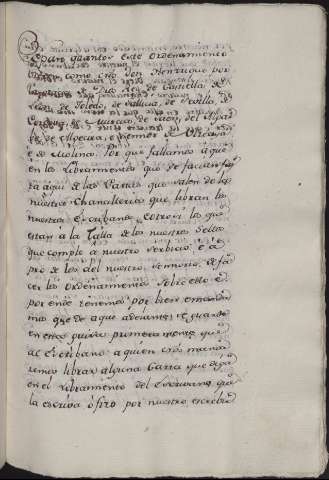 Sepan quantos este ordenamiento
vieren, como Nos Don Henrique por
la gracia de Dios Rey de Castilla, de
Leon, de Toledo, de Galicia, de Sevilla, de
Cordova, de Murcia, de Jaen, del Algar
be, de Algecira, e Señor de Vizcaya
e de Molina. Por que fallamos que
en los libramientos que se facian fas
ta aqui de las Cartas que salen de la
nuestra Chancilleria que libran los
nuestros Escribanos e otrosi los que
estan a la Tabla de los nuestros sellos
que comple a nuestro servicio e a
pro de los del nuestro Señorio, de fa
cer los ordenamientos sobre ello e
por ende tenemos por bien e manda
mos que de aqui adelante se guarde
en esta guisa primeramente que
al Escribano a quien Nos manda
remos librar alguna Carta que diga
en el libramiento del Escribano que
la escriba ò fizo por nuestro